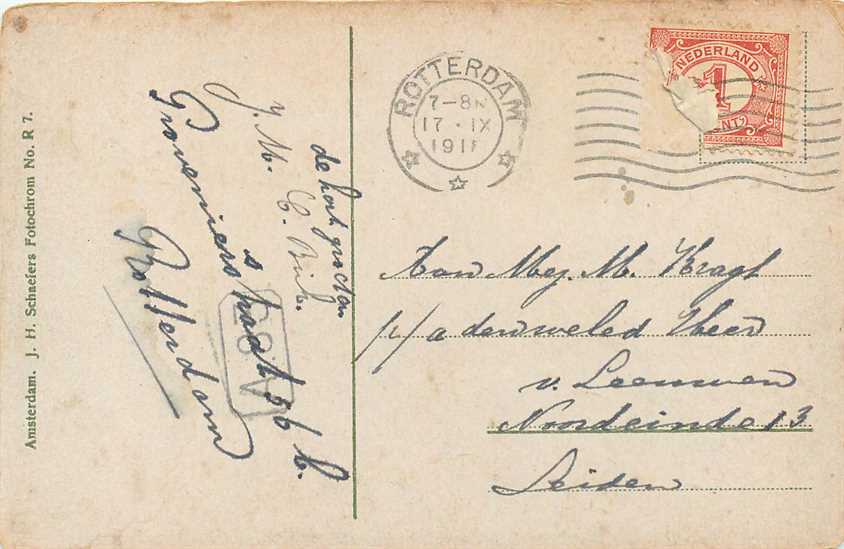 Amsterdam. J. H. Schaefers Fotochrom No. R 7.
de hart groeten
J. M. C.
Proveniers
straat 56 b.
Rotterdam
ROTTERDAM
7-8N
17 · IX
1911
NEDERLAND
1
CENT
Aan Mej. M. Kragt
p/a den weled Heer
v. Leeuwen
Noordeinde 13
Leiden